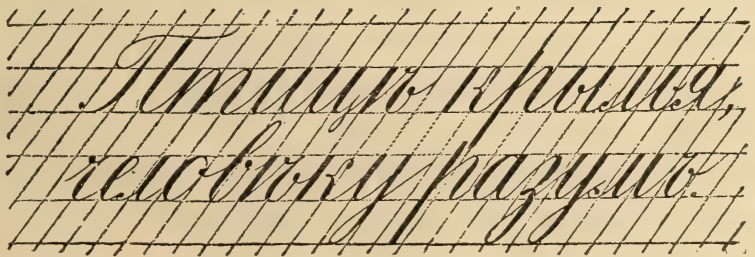 Птицѣ крылья,
человѣку разумъ.